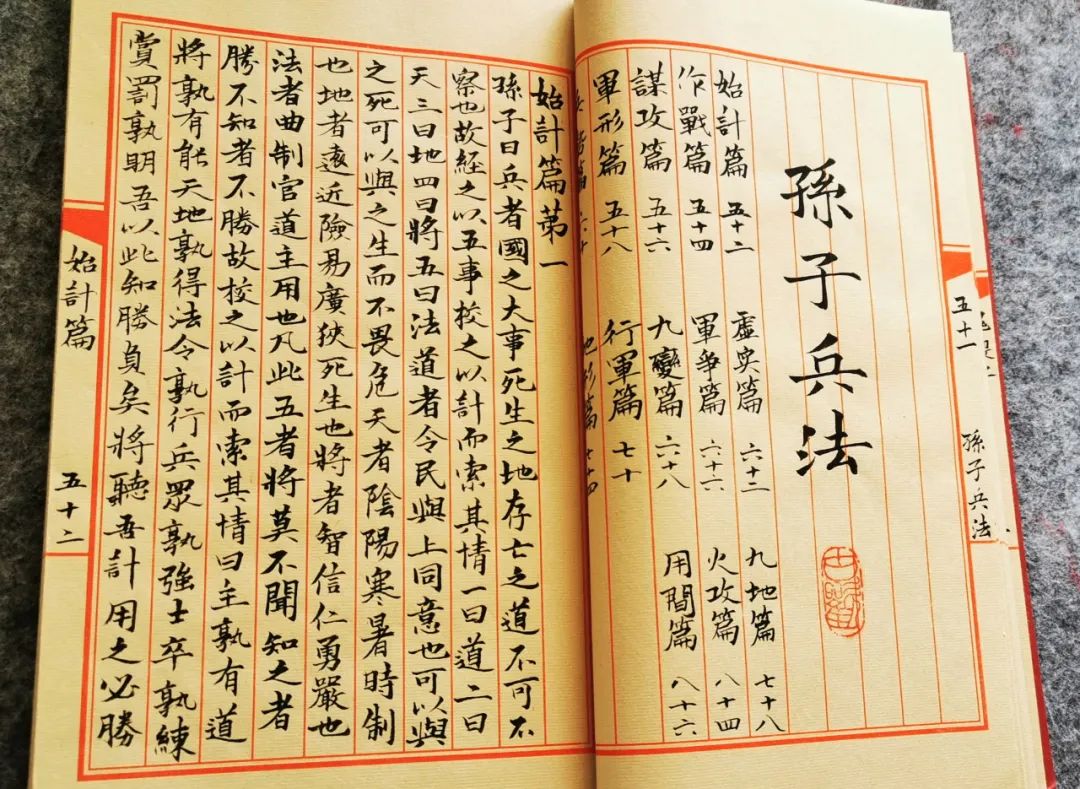 孫子兵法
五十一
孫子兵法
始計篇 五十二 虛实篇 六十二 九地篇 七十八
作戰篇 五十四 軍爭篇 六十六 火攻篇 八十四
謀攻篇 五十六 九變篇 六十八 用間篇 八十六
軍形篇 五十八 行軍篇 七十
篇 六十 地形篇 七十四
始計篇苐一
孫子曰兵者國之大事死生之地存亡之道不可不
察也故經之以五事校之以計而索其情一曰道二曰
天三曰地四曰將五曰法道者令民與上同意也可以與
之死可以與之生而不畏危天者陰陽寒暑時制
也地者遠近險易廣狹死生也將者智信仁勇嚴也
法者曲制官道主用也凡此五者將莫不聞知之者
勝不知者不勝故校之以計而索其情曰主孰有道
將孰有能天地孰得法令孰行兵眾孰強士卒孰練
賞罰孰明吾以此知勝負矣將聽吾計用之必勝
始計篇
五十二